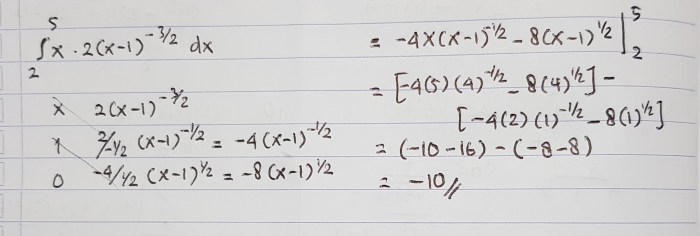 5
∫ x · 2(x-1)^-3/2 dx
2
x 2(x-1)^-3/2
1 2/-1/2 (x-1)^-1/2 = -4(x-1)^-1/2
0 -4/1/2 (x-1)^1/2 = -8(x-1)^1/2
= -4x(x-1)^-1/2 - 8(x-1)^1/2 |
5
2
= [-4(5)(4)^-1/2 - 8(4)^1/2] -
[-4(2)(1)^-1/2 - 8(1)^1/2]
= (-10-16) - (-8-8)
= -10//